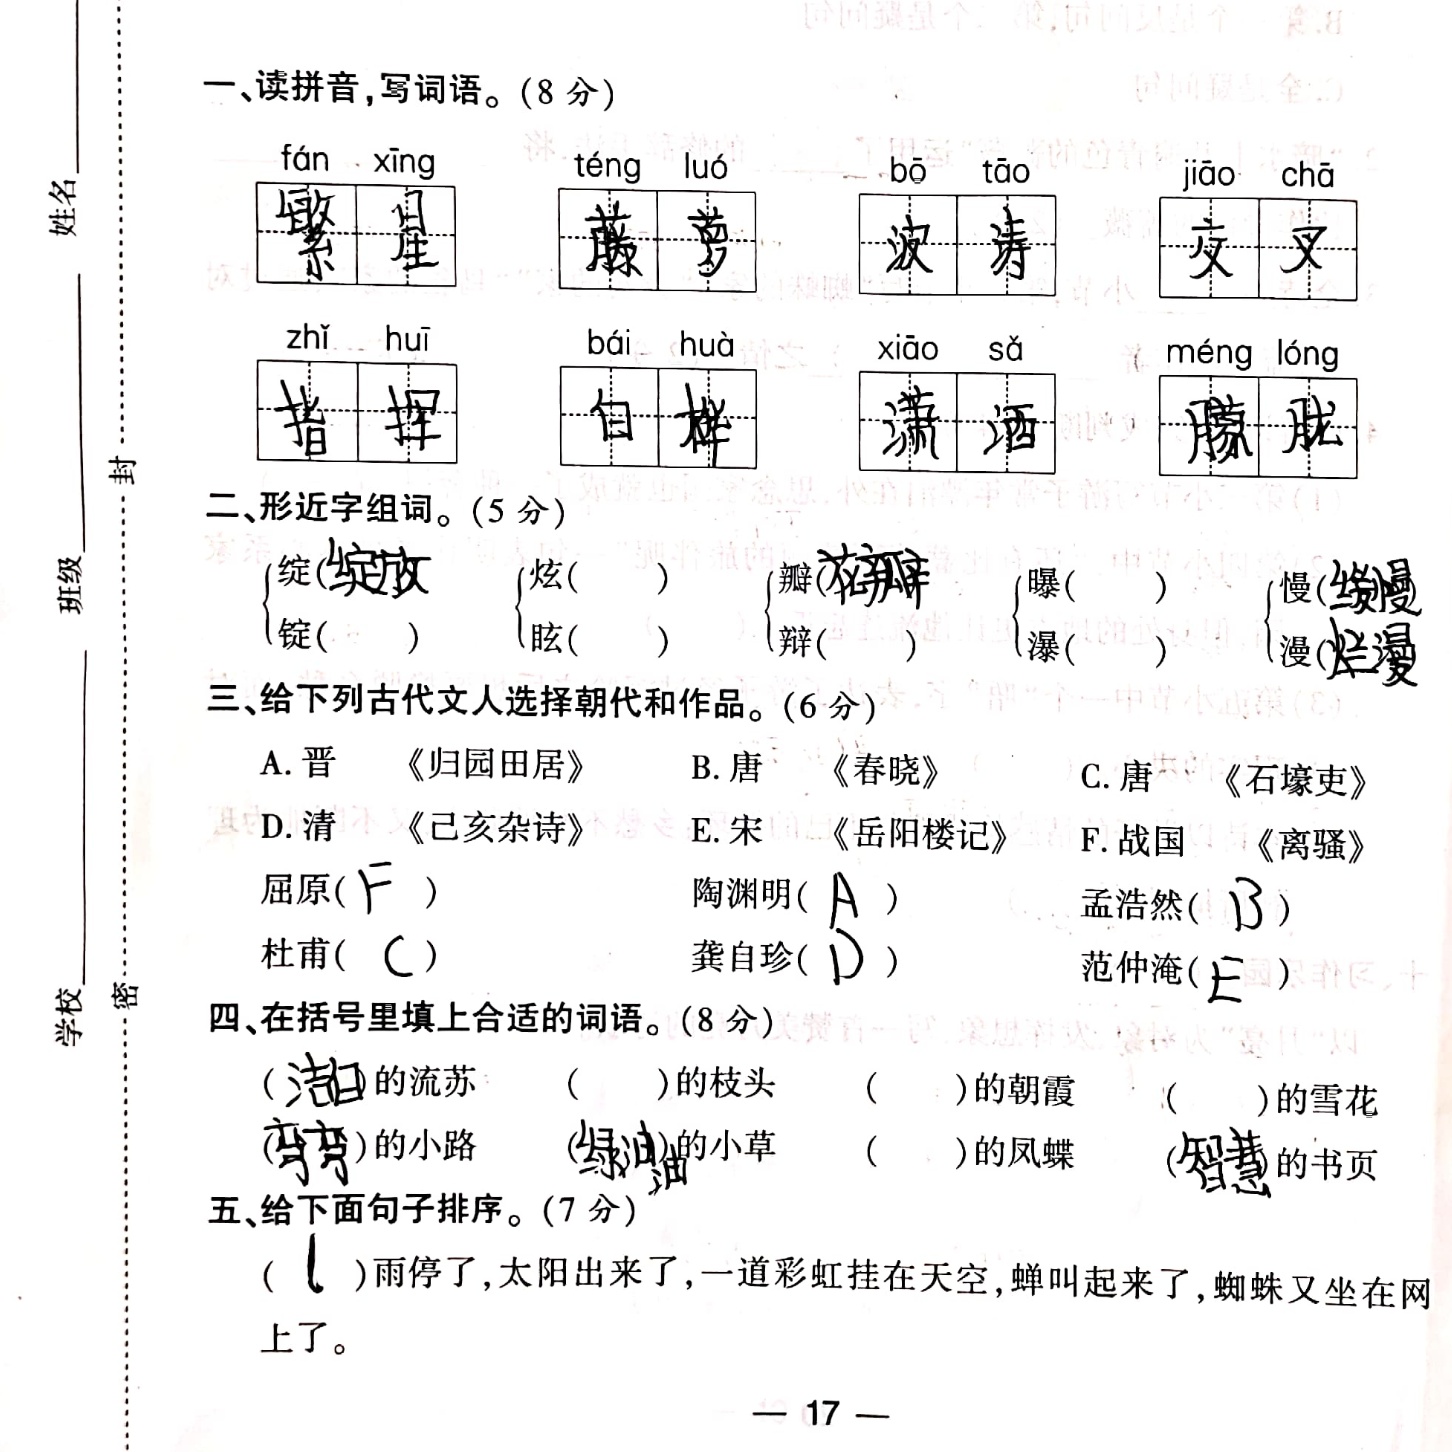 一、读拼音,写词语。(8 分)
fán xīng téng luó bō tāo jiāo chā
繁星 藤萝 波涛 交叉
zhǐ huī bái huà xiāo sǎ méng lóng
指挥 白桦 潇洒 朦胧
二、形近字组词。(5 分)
绽(绽放) 炫( ) 瓣(花瓣) 曝( ) 慢(缓慢)
锭( ) 眩( ) 辩( ) 瀑( ) 漫(烂漫)
三、给下列古代文人选择朝代和作品。(6 分)
A. 晋 《归园田居》 B. 唐 《春晓》 C. 唐 《石壕吏》
D. 清 《己亥杂诗》 E. 宋 《岳阳楼记》 F. 战国 《离骚》
屈原( F ) 陶渊明( A ) 孟浩然( B )
杜甫( C ) 龚自珍( D ) 范仲淹( E )
四、在括号里填上合适的词语。(8 分)
(洁白)的流苏 ( )的枝头 ( )的朝霞 ( )的雪花
(弯弯)的小路 (绿油油)的小草 ( )的凤蝶 (智慧)的书页
五、给下面句子排序。(7 分)
( 1 )雨停了,太阳出来了,一道彩虹挂在天空,蝉叫起来了,蜘蛛又坐在网
上了。
— 17 —
姓名
班级
学校
封
密